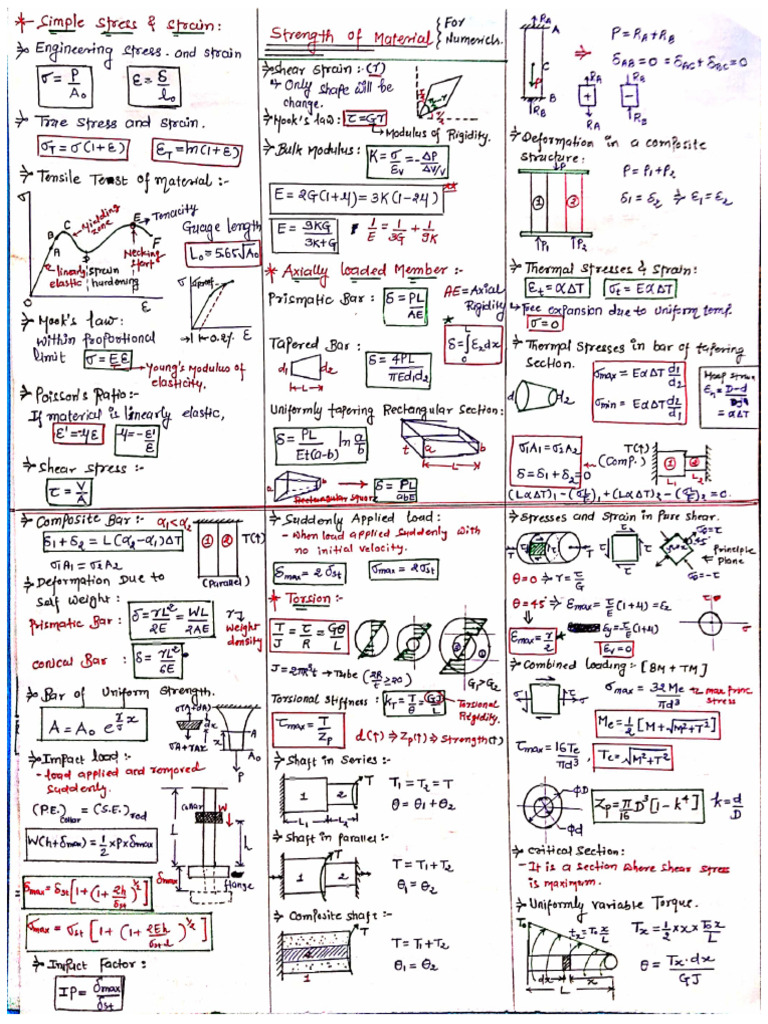 * Simple stress & strain:
→ Engineering stress. and strain
σ = P/A₀  ε = δ/l₀
→ True stress and strain.
σT = σ(1+ε)  εT = ln(1+ε)
→ Tensile Test of material :-
σ
Yielding zone
Tenacity
A B C D E F
Necking start
linearly elastic
strain hardening
O
ε
Guage length
L₀ = 5.65√A₀
σ
→ 0.2%
ε
→ Hook's law:
within proportional
limit σ = Eε
→ Young's Modulus of
elasticity.
→ Poisson's Ratio:-
If material is linearly elastic,
ε' = -με  μ = -ε'/ε
→ Shear stress :-
τ = V/A
Strength of Material { For Numericls.
→ shear strain :- (γ)
↳ Only shape will be
change.
→ Hook's law: τ = Gγ
↳ Modulus of Rigidity.
→ Bulk Modulus: K = σ/εv = -ΔP/ΔV/V
E = 2G(1+μ) = 3K(1-2μ) **
E = 9KG/3K+G  1/E = 1/3G + 1/9K
* Axially loaded Member :-
Prismatic Bar : δ = PL/AE  AE = Axial Rigidity
*
Tapered Bar :
d₁ d₂
L
δ = 4PL/πEd₁d₂
δ = ∫₀ᴸ εx dx
Uniformly tapering Rectangular Section:
δ = PL/Et(a-b) ln a/b
t a b
L
a b
Rectangular square
→ δ = PL/abE
RA
A
C
P
B
RB
⇒
P = RA + RB
δAB = 0 = δAC + δBC = 0
RA RB
+ -
RA RB
→ Deformation in a composite
structure:
① ②
P₁ P₂
P = P₁ + P₂
δ₁ = δ₂ ⇒ ε₁ = ε₂
→ Thermal stresses & Strain:
εt = αΔT  σt = EαΔT
↳ Free expansion due to uniform temp.
σ = 0
→ Thermal Stresses in bar of tapering
section.
d₁ d₂
σmax = EαΔT d₁/d₂
σmin = EαΔT d₂/d₁
Hoop strain
= αΔT
σ₁A₁ = σ₂A₂
δ = δ₁ + δ₂ = 0
← (Comp.)
T(↑)
① ②
L₁ L₂
(LαΔT)₁ - (σL/E)₁ + (LαΔT)₂ - (σL/E)₂ = 0.
→ Composite Bar :- α₁<α₂
δ₁ + δ₂ = L(α₂-α₁)ΔT
σ₁A₁ = σ₂A₂
① ② T(↑)
(Parallel)
→ Deformation Due to
Self weight :
Prismatic Bar : δ = γL²/2E = WL/2AE
γ → Weight density
conical Bar : δ = γL²/6E
→ Bar of Uniform Strength.
A = A₀ e^(γ/σ x)
x A
A₀
P
→ Impact load :-
- load applied and removed
suddenly.
(P.E.)collar = (S.E.)rod
W(h+δmax) = 1/2 × P × δmax
Collar W
L
δmax
flange
δmax = δst [1 + (1 + 2h/δst)^1/2]
σmax = σst [1 + (1 + 2Eh/σst·L)^1/2]
→ Impact Factor :
IF = δmax/δst
→ Suddenly Applied load :
- When load applied suddenly with
no initial velocity.
δmax = 2δst  σmax = 2σst
* Torsion :-
T/J = τ/R = Gθ/L
① ②
G₁ > G₂
J = 2πR³t → Tube
Torsional Stiffness : KT = T/θ = GJ/L
→ Torsional Rigidity.
τmax = T/Zp
d(↑) ⇒ Zp(↑) ⇒ Strength(↑)
→ Shaft in Series :-
1 2 T
L₁ L₂
T₁ = T₂ = T
θ = θ₁ + θ₂
→ Shaft in parallel :-
1 2 T
T = T₁ + T₂
θ₁ = θ₂
→ Composite shaft :-
T
1
T = T₁ + T₂
θ₁ = θ₂
→ Stresses and Strain in Pure shear.
τ
45°
Principle
Plane
θ = 0 ⇒ γ = τ/G
θ = 45° ⇒ εmax = τ/E (1+μ) = ε₂
εmax = γ/2 *
εy = 0
→ Combined loading :- [BM + TM]
σmax = 32Me/πd³ → max princ stress
Me = 1/2 [M + √M²+T²]
τmax = 16Te/πd³  Te = √M²+T²
ΦD
Φd
Zp = π/16 D³ [1 - k⁴]  k = d/D
→ Critical Section :
- It is a section where shear stress
is maximum.
→ Uniformly variable Torque.
T₀
tx = T₀ x/L
Tx = 1/2 × x × T₀x/L
dx x
L
θ = Tx·dx/GJ